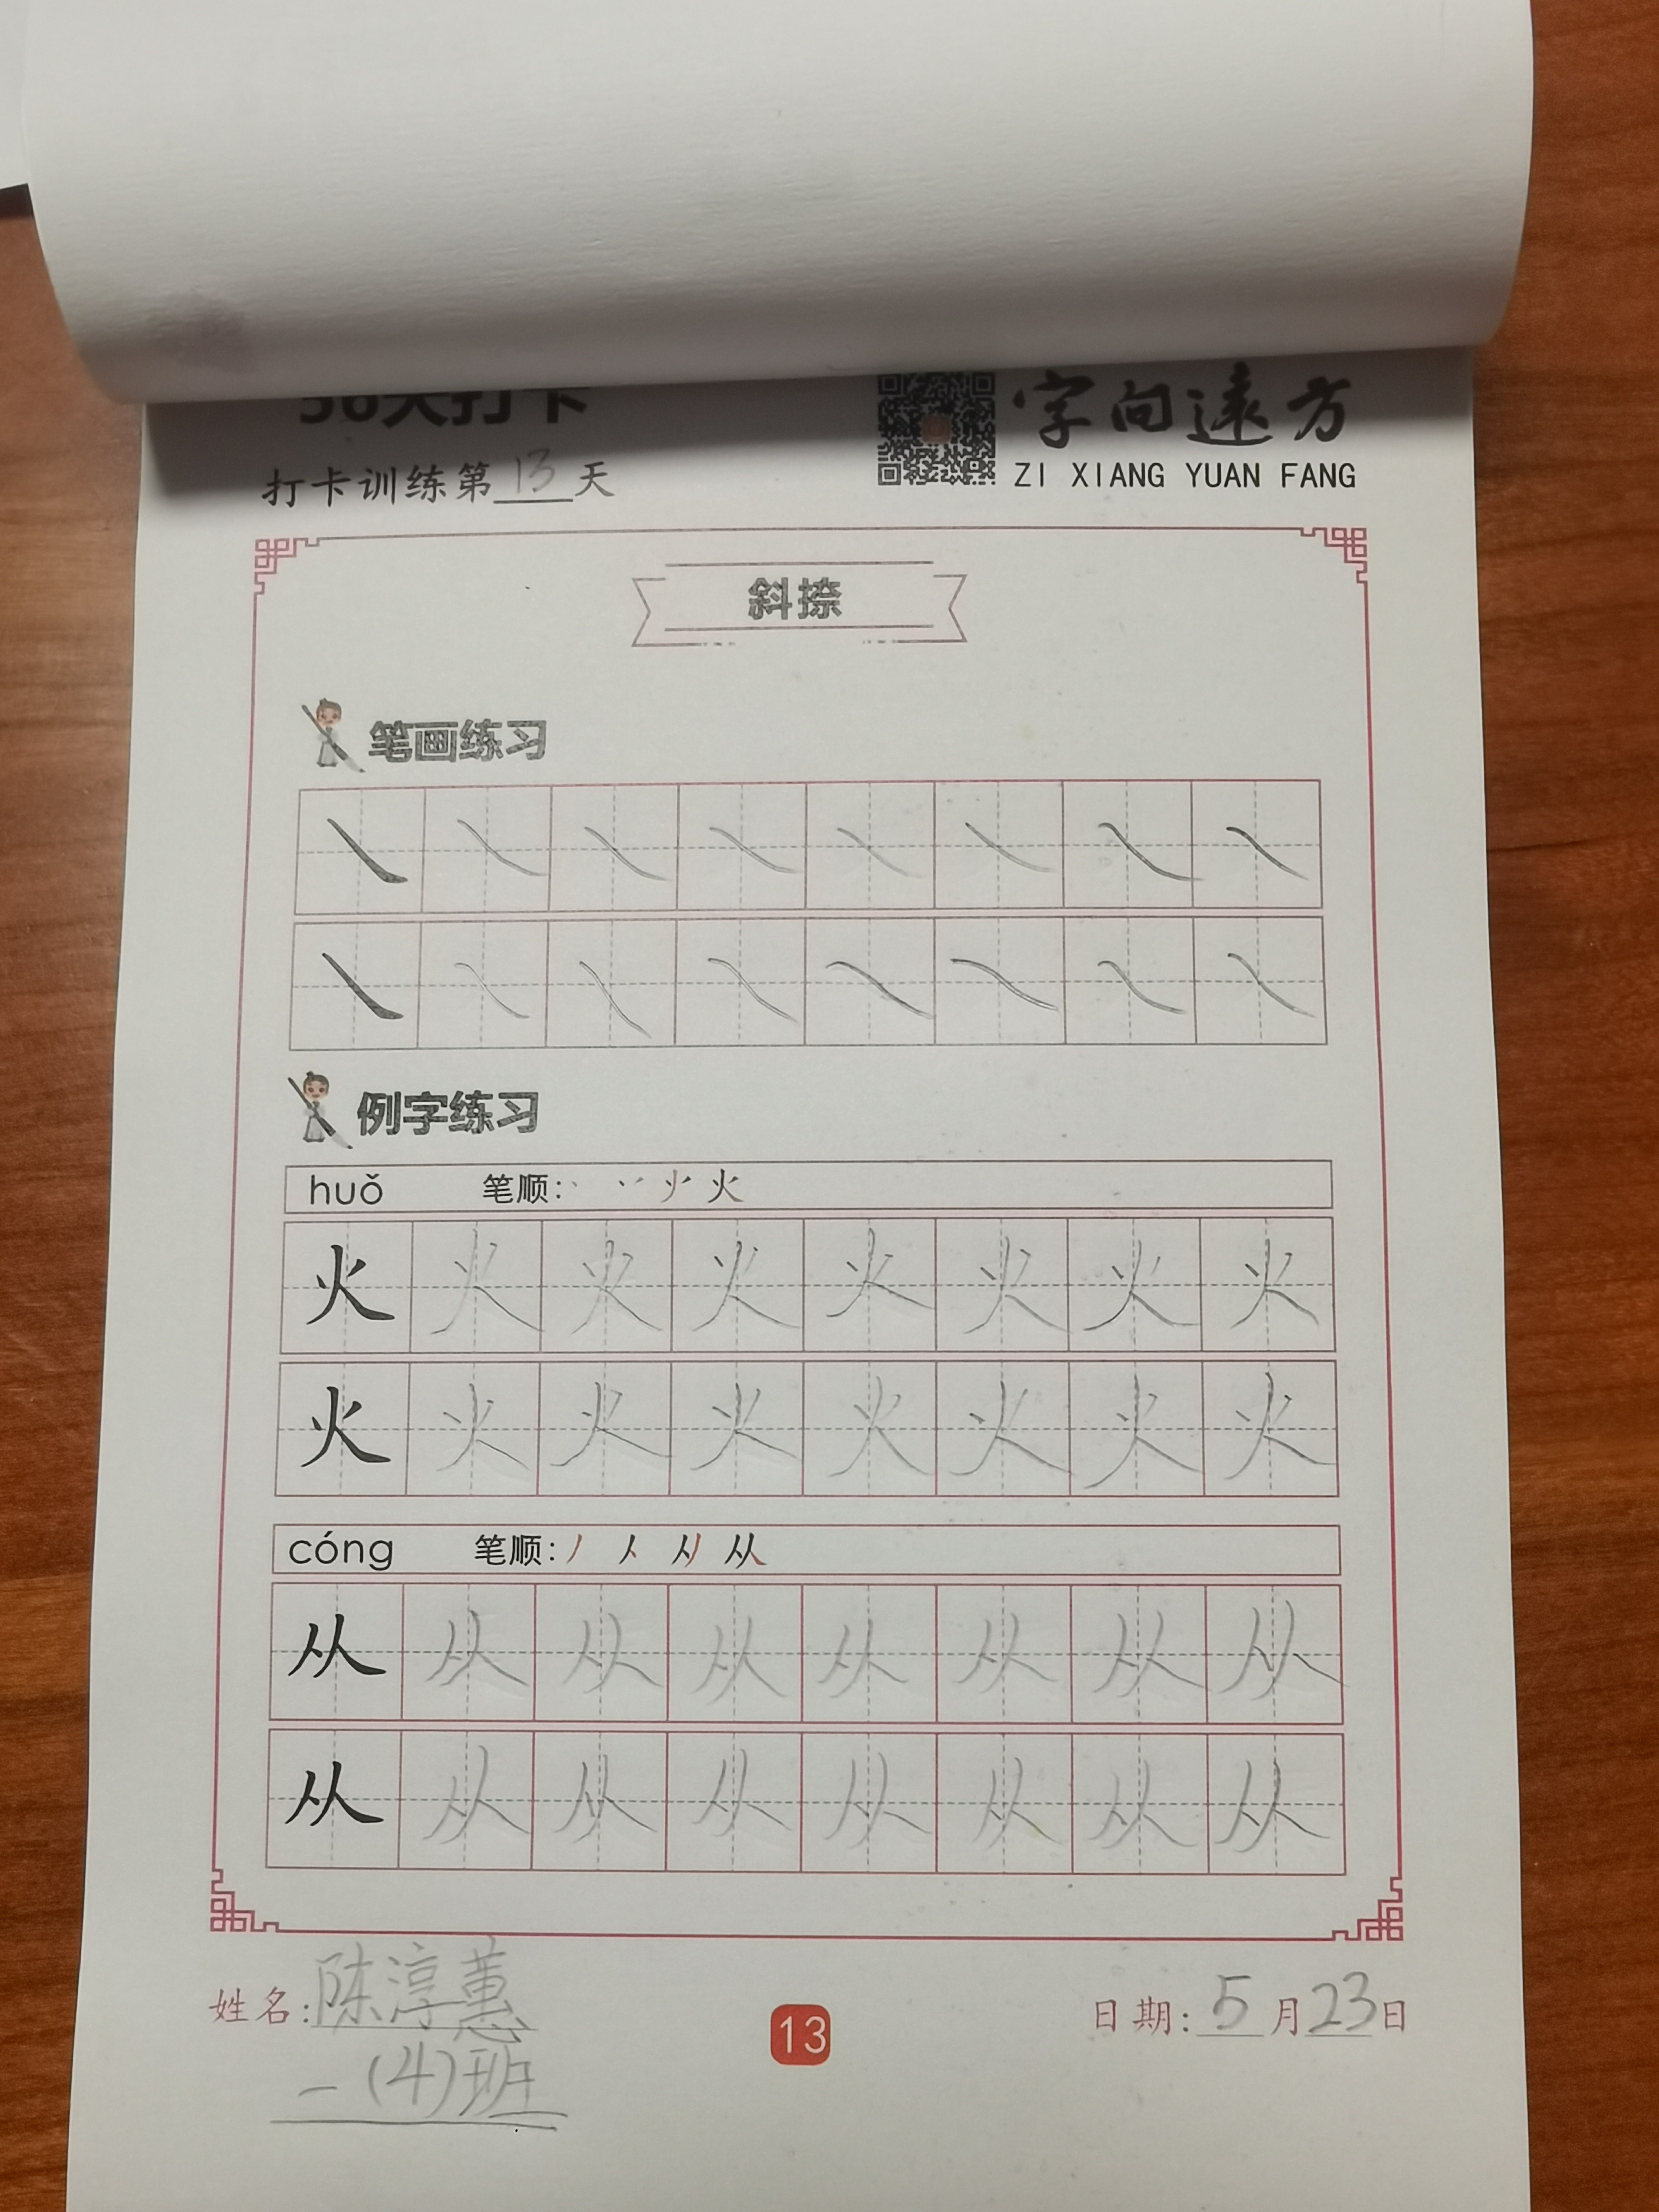 36天打卡
字向遠方
ZI XIANG YUAN FANG
打卡训练第13天
斜捺
笔画练习
例字练习
huǒ 笔顺: 火
火 火 火 火 火 火 火 火
火 火 火 火 火 火 火 火
cóng 笔顺: 丿 人 从
从 从 从 从 从 从 从 从
从 从 从 从 从 从 从 从
姓名: 陈淳蕙
一(4)班
13
日期: 5月23日